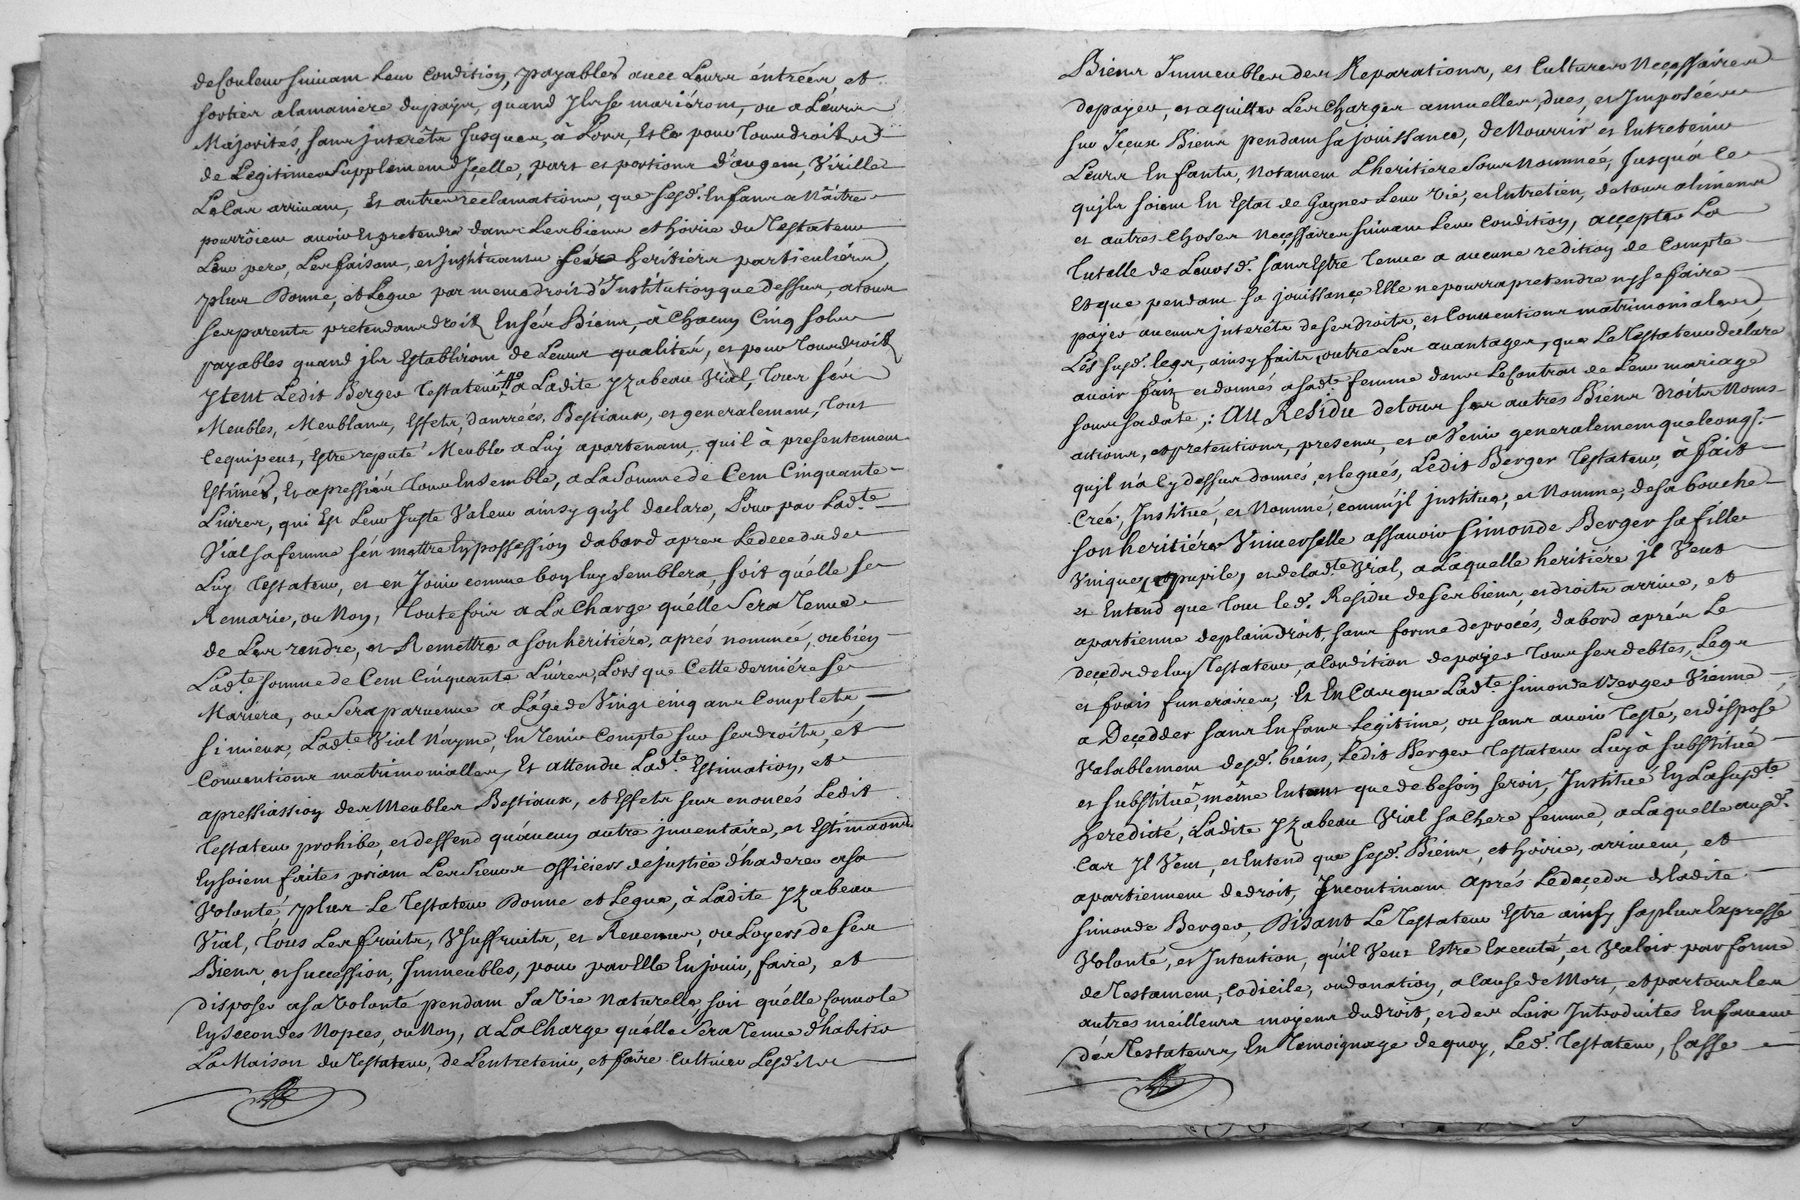 de Couleur suivant leur condition, payables avec Leurs éntrées et
sorties alamaniere dupaÿs, quand Jlsse mariéront, ou a Léurs
Majorités, sans jnterêts Jusques, à Lors, Et Ce pour Tousdroits
de Legitime Supplement d'Jcelle, part et portions d'augent, Virille
Lelas arrivant, Et autres reclamations, que sesd. Enfans a Naître
pourrôient avoir Et pretendre dans Lesbiens et hoirie du Testateur
Leur pere, Les faisant, et jnstituants sés heritiérs particuliérs,
plus Donne, et Legue par meme droit d'Institution que dessus, atous
sesparents pretendans droit Ensés Biens, à Chacun Cinq sols
payables quand jls Establiront de Leurs qualités, et pour Tousdroits
Jtem Ledit Berger Testateur a Ladite Yzabeau Vial, Tous sés
Meubles, Meublans, Effets, danrrées, Bestiaux, et generalement, Tout
Cequipeut, Estre reputé Meuble a Luÿ apartenant, quil à presentement
Estimés, Et apressiés Tous Ensemble, a La Somme de Cent Cinquante
Livres, qui Est Leur Juste Valeur ainsy qu'jl declare, Pour par Lad.te
Vial sa femme s'én mettre En possession dabord apres Ledeceds de
Luy Testateur, et en Jouir comme bon luy Semblera, soit qu'élle se
Remarie, ou Non, Toutefois a La Charge qu'élle Sera Tenue
de Les rendre, et Remettre a son hèritiére, aprés nommée, oubien
Lad.te somme de Cent Cinquante Livres, Lors que Cette derniére se
Mariera, ou Sera parvenue a L'âge de Vingt cinq ans Complets,
si mieux, Lad.te Vial N'ayme, En Tenir Compte sur ses droits, et
Conventions matrimonialles, Et attendu Lad.te Estimation, et
apressiassion des Meubles Bestiaux, et Effets sus enoncés Ledit
Testateur prohibe, et deffend qu'aucun autre jnventaire, et Estimaons.
En soient faites priant Les Sieurs Officiers de justice d'hadere a sa
Volonté, plus Le Testateur Donne et Legue, à Ladite Yzabeau
Vial, Tous Les fruits, Vsuffruits, et Revenus, ou Loyers de Sés
Biens, et succession, Jmmeubles, pour par Elle En jouir, faire, et
disposer a sa Volonté pendant Sa Vie Naturelle, soit qu'élle Convole
En Secondes Nopces, ou Non, a La Charge qu'élle Sera Tenue d'habiter
La Maison du Testateur, de L'entretenir, et faire Cultiver Lesdits
Biens Jmmeubles des Reparations, et Cultures Neçessaires
depayer, et aquitter Les Charges annuelles, dues, et Jmposées
sur Jceux Biens pendant sa jouissance, de Nourrir et Entretenir
Leurs Enfants, Notament L'heritiere sous Nommée, Jusqu'à Ce
qu'jls soient En Estat de Gagner Leur Vie, et Entretien, detous alimens
et autres Choses Neçessaires suivant Leur Condition, accepter La
Tutelle de Leursd. sans Estre Tenue a aucune redition de Compte
Et que pendant sa jouissance Elle ne pourra pretendre ny se faire
payer aucuns jnterêts de ses droits, et Conventions matrimoniales,
Les susd. legs, ainsy faits, outre Les avantages, que Le Testateur declare
avoir fait et donnés a sad.te femme dans Le Contrat de Leur mariage
sous sa date,: AU Residu detous ses autres Biens droits Noms
actions, et pretentions, presens, et a Venir generalement quelconq.
qujl n'a Cy dessus donnés, et legués, Ledit Berger Testateur, à fait
Creé, Jnstitué, et Nommé, comm'jl jnstitue, et Nomme, de sa bouche
son heritiére Vniverselle assavoir Simonde Berger sa fille
Vnique, et pupile, et de lad.te Vial, a Laquelle heritiére jl Veut
et Entend que Tout led. Residu de ses biens, et droits arrive, et
apartienne de plain droit, sans forme de procés, dabord aprés Le
deceds de luy Testateur, a Condition depayer Tous ses debtes, Legs
et frais funeraires, Et En Cas que Lad.te Simonde Berger Vienne
a Deçedder sans Enfans Legitime, ou sans avoir Testé, et disposé
Valablement desd. biéns, Ledit Berger Testateur Luy à substitué
et substitue, même Entant que de besoin seroit, Jnstitué En La susd.te
heredité, Ladite Yzabeau Vial sa Chere femme, a Laquelle ausd.
Cas Jl Veut, et Entend que sesd. Biéns, et hoirie, arrivent, et
apartiennent de droit, Jncontinant aprés Ledeceds de ladite
Simonde Berger, Disant Le Testateur Estre ainsy sa plus Expresse
Volonté, et Jntention, qu'il Veut Estre Executé, et Valoir par forme
de Testament, Codicile, ou donation, a Cause de Mort, et par tous les
autres méilleurs moyens du droit, et des Loix Introduites Enfaveur
dés Testateurs, En Temoignage de quoy, Led. Testateur, Casse